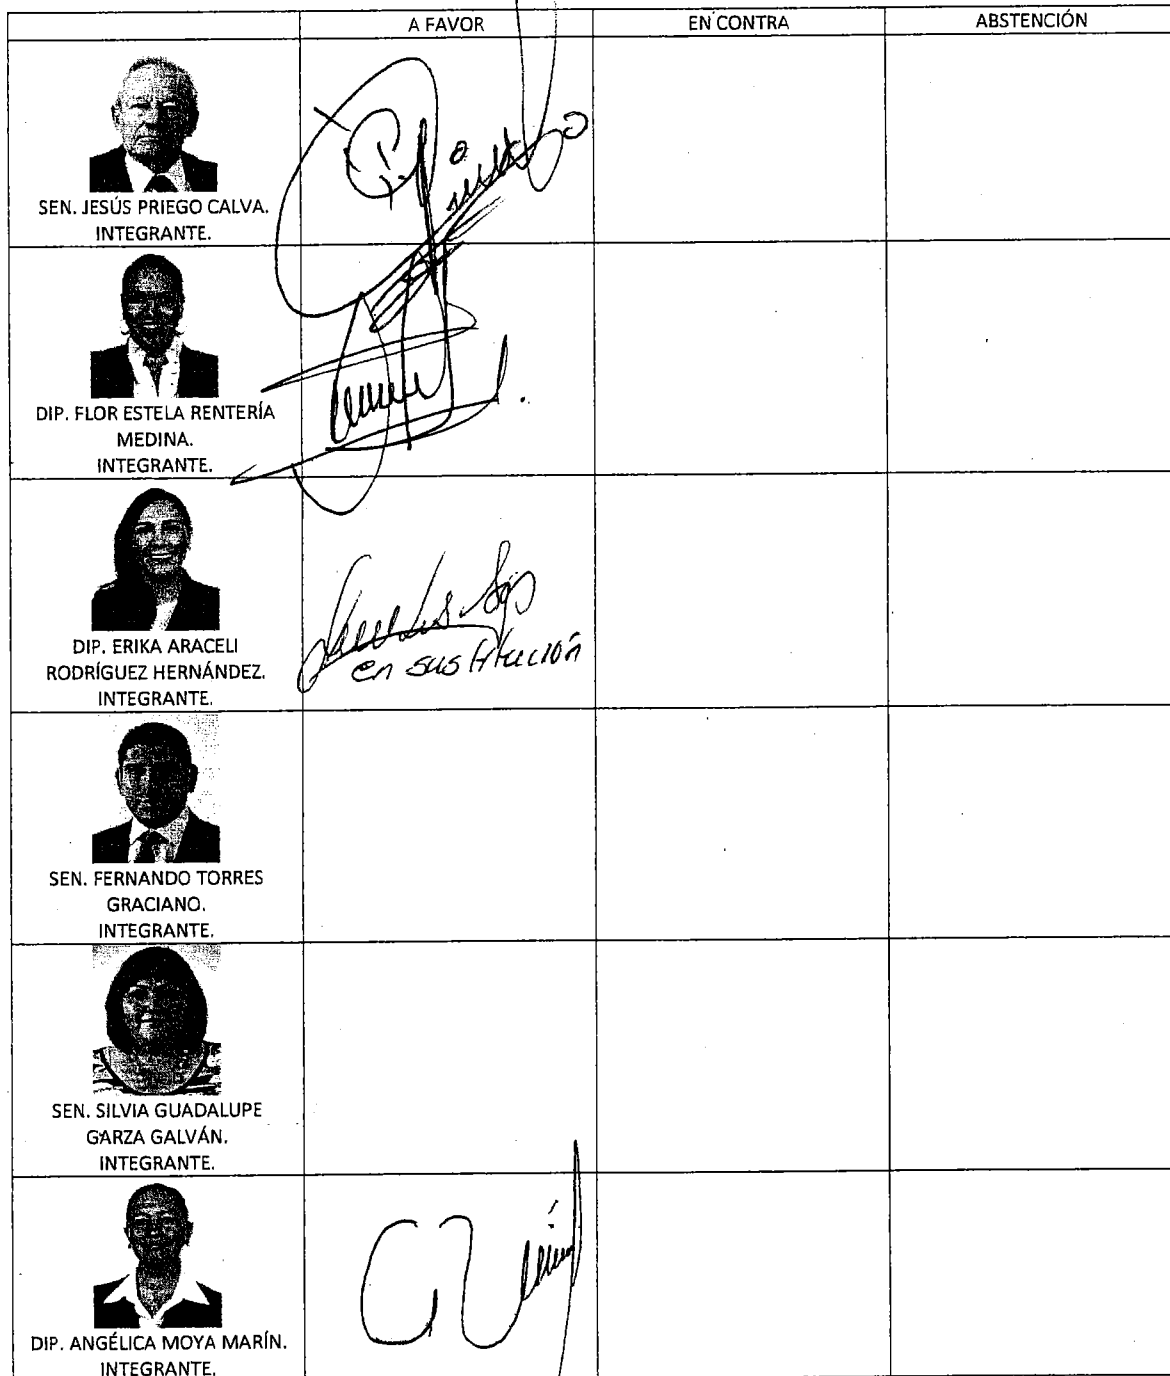 A FAVOR EN CONTRA ABSTENCIÓN
SEN. JESÚS PRIEGO CALVA.
INTEGRANTE.
DIP. FLOR ESTELA RENTERÍA
MEDINA.
INTEGRANTE.
DIP. ERIKA ARACELI
RODRÍGUEZ HERNÁNDEZ.
INTEGRANTE.
en sustitución
SEN. FERNANDO TORRES
GRACIANO.
INTEGRANTE.
SEN. SILVIA GUADALUPE
GARZA GALVÁN.
INTEGRANTE.
DIP. ANGÉLICA MOYA MARÍN.
INTEGRANTE.